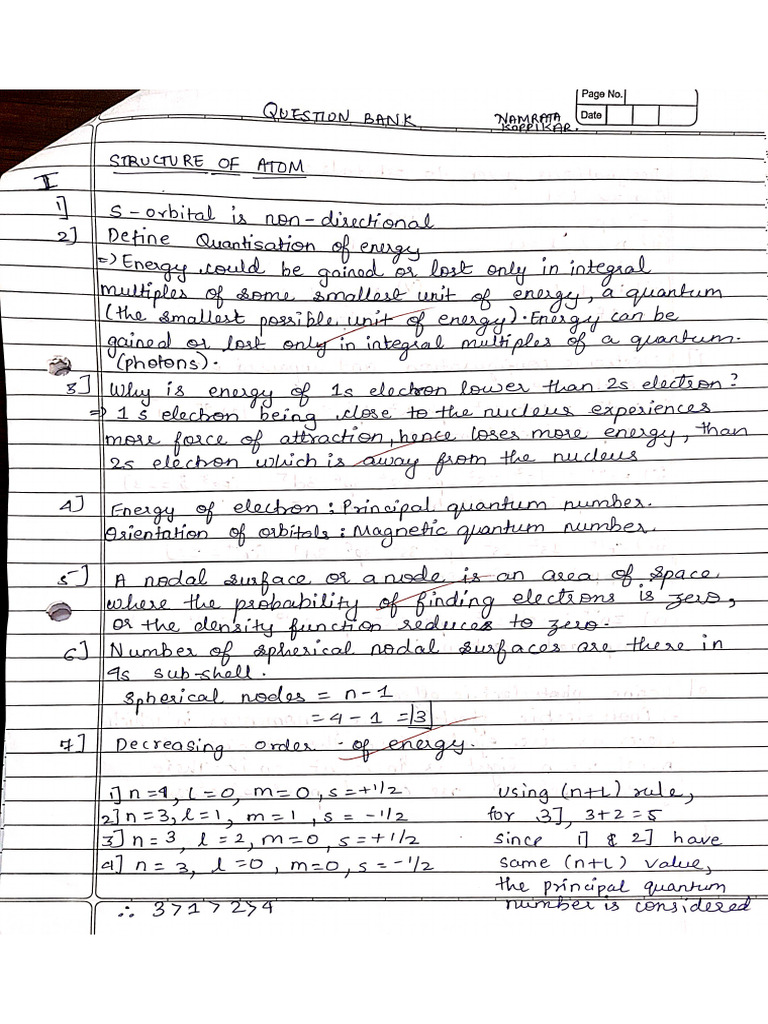 Page No.
QUESTION BANK
NAMRATA
KOPPIKAR.
Date
STRUCTURE OF ATOM
I
1] S-orbital is non-directional
2] Define Quantisation of energy
=) Energy could be gained or lost only in integral
multiples of some smallest unit of energy, a quantum
(the smallest possible unit of energy). Energy can be
gained or lost only in integral multiples of a quantum.
(photons).
3] Why is energy of 1s electron lower than 2s electron?
=) 1s electron being close to the nucleus experiences
more force of attraction, hence loses more energy, than
2s electron which is away from the nucleus
4] Energy of electron : Principal quantum number.
Orientation of orbitals : Magnetic quantum number.
5] A nodal surface or a node is an area of space
where the probability of finding electrons is zero,
or the density function reduces to zero.
6] Number of spherical nodal surfaces are there in
4s sub-shell.
Spherical nodes = n-1
= 4-1 = 3
7] Decreasing order of energy.
1] n=4, l=0, m=0, s=+1/2
2] n=3, l=1, m=1, s= -1/2
3] n=3, l=2, m=0, s=+1/2
4] n=3, l=0, m=0, s=-1/2
∴ 3>1>2>4
using (n+l) rule,
for 3], 3+2=5
since 1] & 2] have
same (n+l) value,
the principal quantum
number is considered